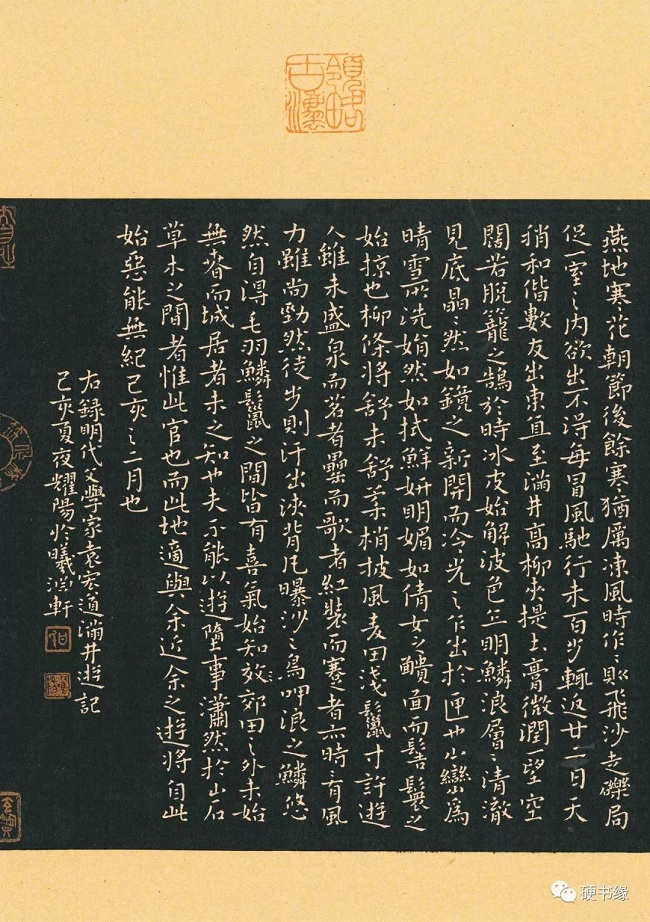 領略古灋
燕地寒花朝節後餘寒猶厲凍風時作〻則飛沙走礫局
促一室之内欲出不得每冒風馳行未百步輒返廿二日天
稍和偕數友出東直至滿井高柳夾堤土膏微潤一望空
闊若脫籠之鵠於時冰皮始解波色乍明鱗浪層〻清澈
見底晶然如鏡之新開而冷光之乍出於匣也山巒爲
晴雪所洗娟然如拭鮮妍明媚如倩女之靧面而髻鬟之
始掠也柳條將舒未舒柔梢披風麦田淺鬣寸許遊
人雖未盛泉而茗者罍而歌者紅裝而蹇者亦時〻有風
力雖尚勁然徒步則汗出浹背凡曝沙之鳥呷浪之鱗悠
然自得毛羽鱗鬣之間皆有喜氣始知效郊田之外未始
無春而城居者未之知也夫不能以遊墮事瀟然於山石
草木之間者惟此官也而此地適與余近余之遊將自此
始惡能無紀己亥之二月也
右錄明代文學家袁宏道滿井遊記
己亥夏夜耀陽於曦軒
硬书缘